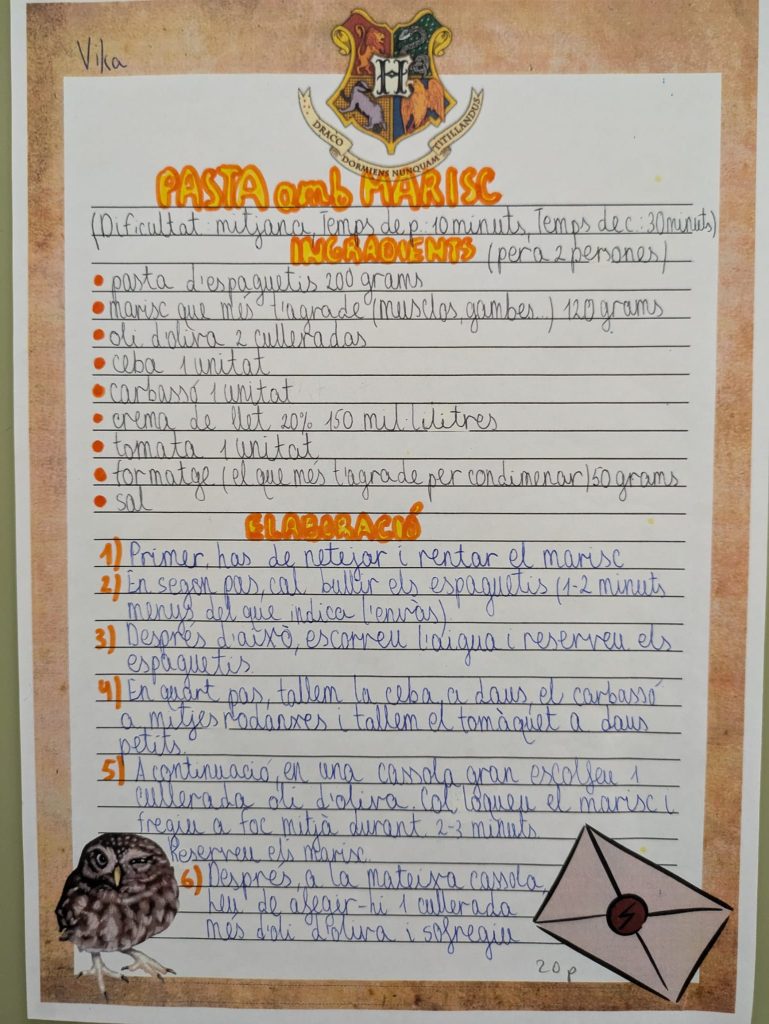 Vika
H
DRACO DORMIENS NUNQUAM TITILLANDUS
PASTA amb MARISC
(Dificultat: mitjana, Temps de p.: 10 minuts, Temps de c.: 30 minuts)
INGRADIENTS (per a 2 persones)
• pasta d'espaguetis 200 grams
• marisc que més t'agrade (musclos, gambes...) 120 grams
• oli d'oliva 2 culleradas
• ceba 1 unitat
• carbassó 1 unitat
• crema de llet 20% 150 mil·lilitres
• tomata 1 unitat
• formatge (el que més t'agrade per condimenar) 50 grams
• sal
ELABORACIÓ
1) Primer, has de netejar i rentar el marisc
2) En segon pas, cal bullir els espaguetis (1-2 minuts
menys del que indica l'envàs)
3) Després d'això, escorreu l'aigua i reserveu els
espaguetis.
4) En quart pas, tallem la ceba, a daus, el carbassó
a mitjes rodanxes i tallem el tomàquet a daus
petits.
5) A continuació, en una cassola gran escolfeu 1
cullerada oli d'oliva. Col·loqueu el marisc i
fregiu a foc mitjà durant 2-3 minuts.
Reserveu els marisc.
6) Després, a la mateixa cassola,
heu de afegir-hi 1 cullerada
més d'oli d'oliva i sofregiu
20 p